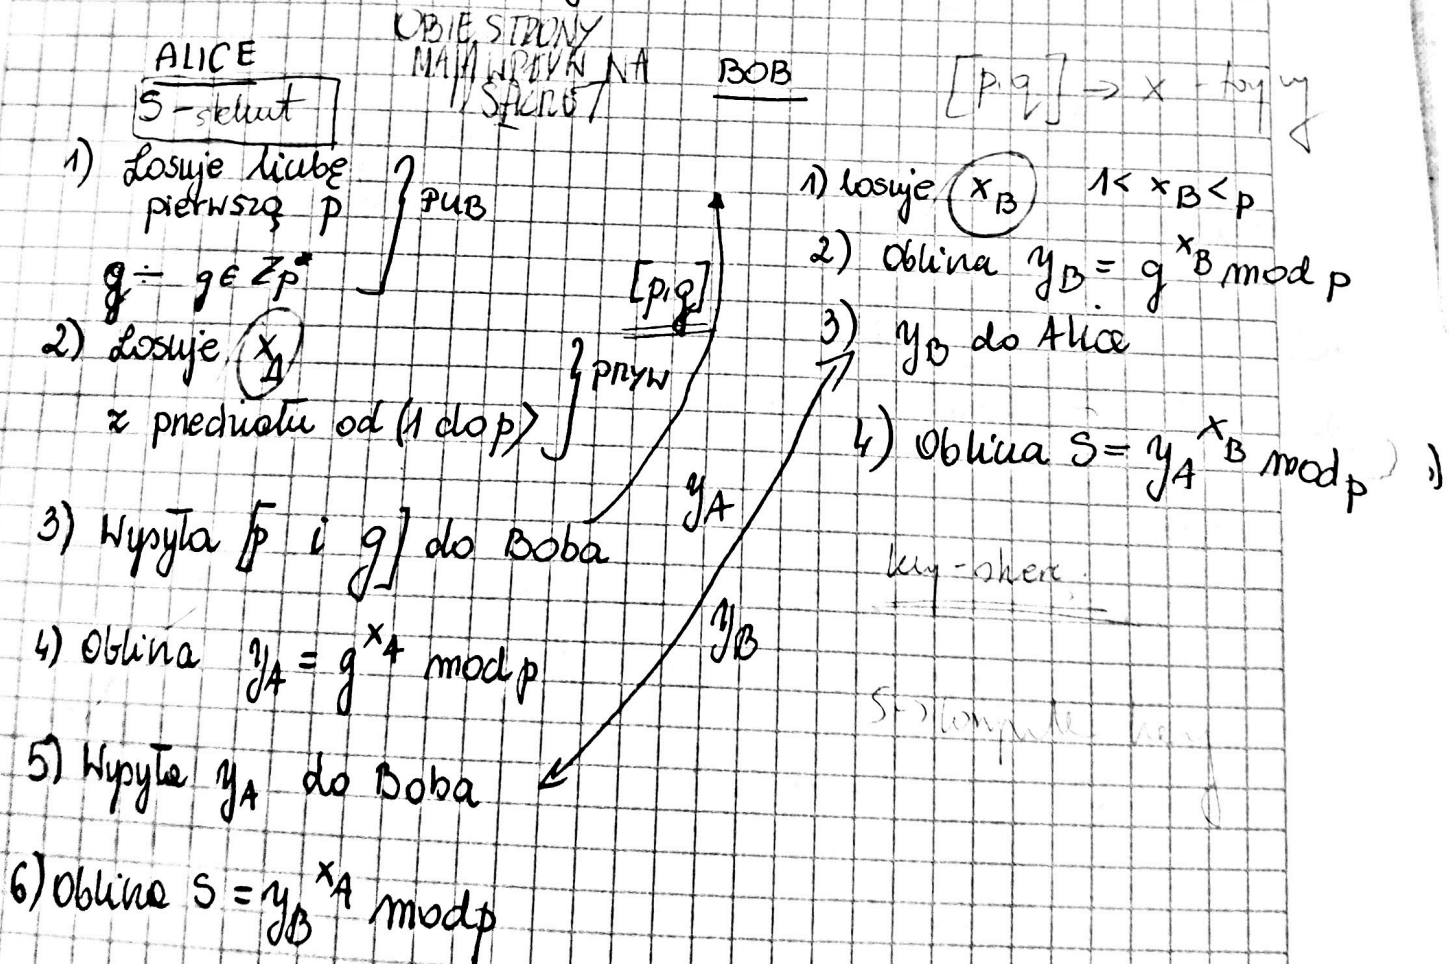 OBIE STRONY
MAJĄ WPŁYW NA
SEKRET
ALICE
S - sekret
1) Losuje liczbę
pierwszą p
g ÷ g ∈ Zp*
} PUB
2) Losuje x_A
z przedziału od (1 do p)
} PRYW
3) Wysyła [p i g] do Boba
4) Oblicza y_A = g^x_A mod p
5) Wysyła y_A do Boba
6) Oblicza S = y_B^x_A mod p
[p, g]
y_A
y_B
BOB
[p, g] → x -
1) losuje x_B 1 < x_B < p
2) Oblicza y_B = g^x_B mod p
3) y_B do Alice
4) Oblicza S = y_A^x_B mod p
key-share
S →